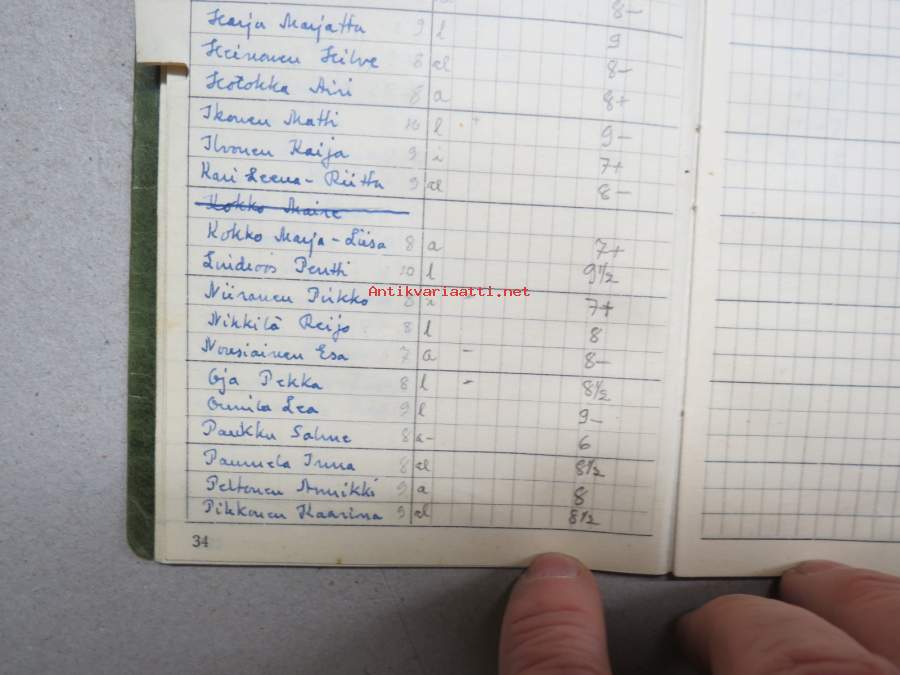 8-
Harja Marjatta 9 l 9
Heinonen Hilve 8 al 8-
Hotokka Airi 8 a 8+
Ikonen Matti 10 l 9-
Ilvonen Kaija 9 i 7+
Kari Leena-Riitta 9 al 8-
Kokko Maire
Kokko Marja-Liisa 8 a 7+
Lindroos Pentti 10 l 9 1/2
Antikvariaatti.net
Niiranen Pirkko 8 i 7+
Nikkilä Reijo 8 l 8
Nousiainen Esa 7 a - 8-
Oja Pekka 8 l - 8 1/2
Ounila Lea 9 l 9-
Paukku Salme 8 a- 6
Paunula Irma 8 al 8 1/2
Peltonen Annikki 9 a 8
Pikkonen Kaarina 9 al 8 1/2
34